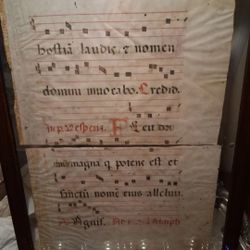 hostiā laudis. & nomen
domini inuocabo. Credid.
in p. Vesperis. Fecit dñs
magna q potens est et
sanctū nomen eius alleluia.
Magnif.